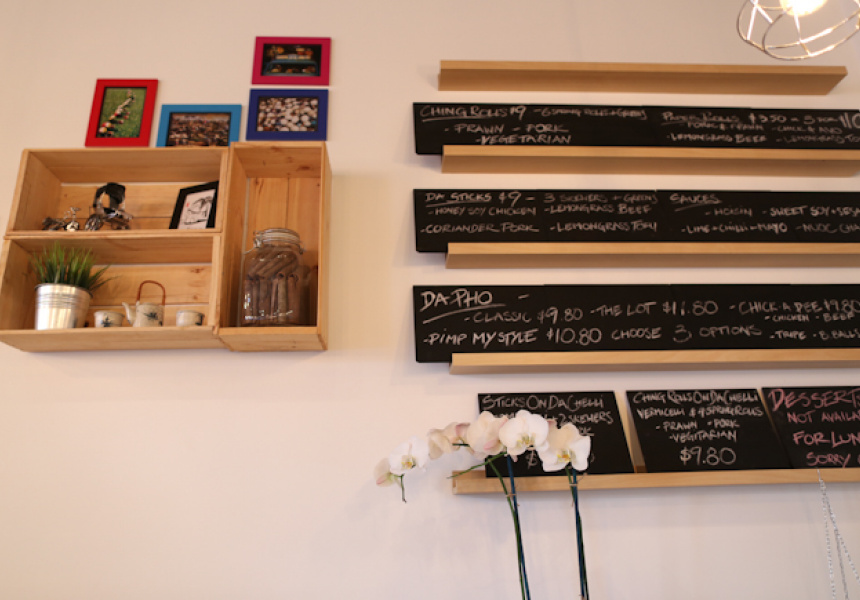 CHING ROLLS $9
- PRAWN - PORK
- VEGETARIAN
ROLLS $9.50
- LEMONGRASS BEEF - LEMONGRASS
DA STICKS $9 - 3 SKEWERS + GREENS
- HONEY SOY CHICKEN - LEMONGRASS BEEF
- CORIANDER PORK - LEMONGRASS TOFU
SAUCES
- HOISIN - SWEET SOY
- LIME + CHILLI + MAYO - NUOC
DA PHO -
- CLASSIC $9.80 - THE LOT $11.80 - CHICK A DEE $9.80
- CHICKEN - BEEF
- PIMP MY STYLE $10.80 CHOOSE 3 OPTIONS - TRIPE - B. BALLS
STICKS ON DA CHELLI
2 SKEWERS
CHING ROLLS ON DA CHELLI
VERMICELLI $ 4 SPRING ROLLS
- PRAWN - PORK
- VEGITARIAN
$9.80
DESSERTS
NOT AVAILA
FOR LUN
SORRY